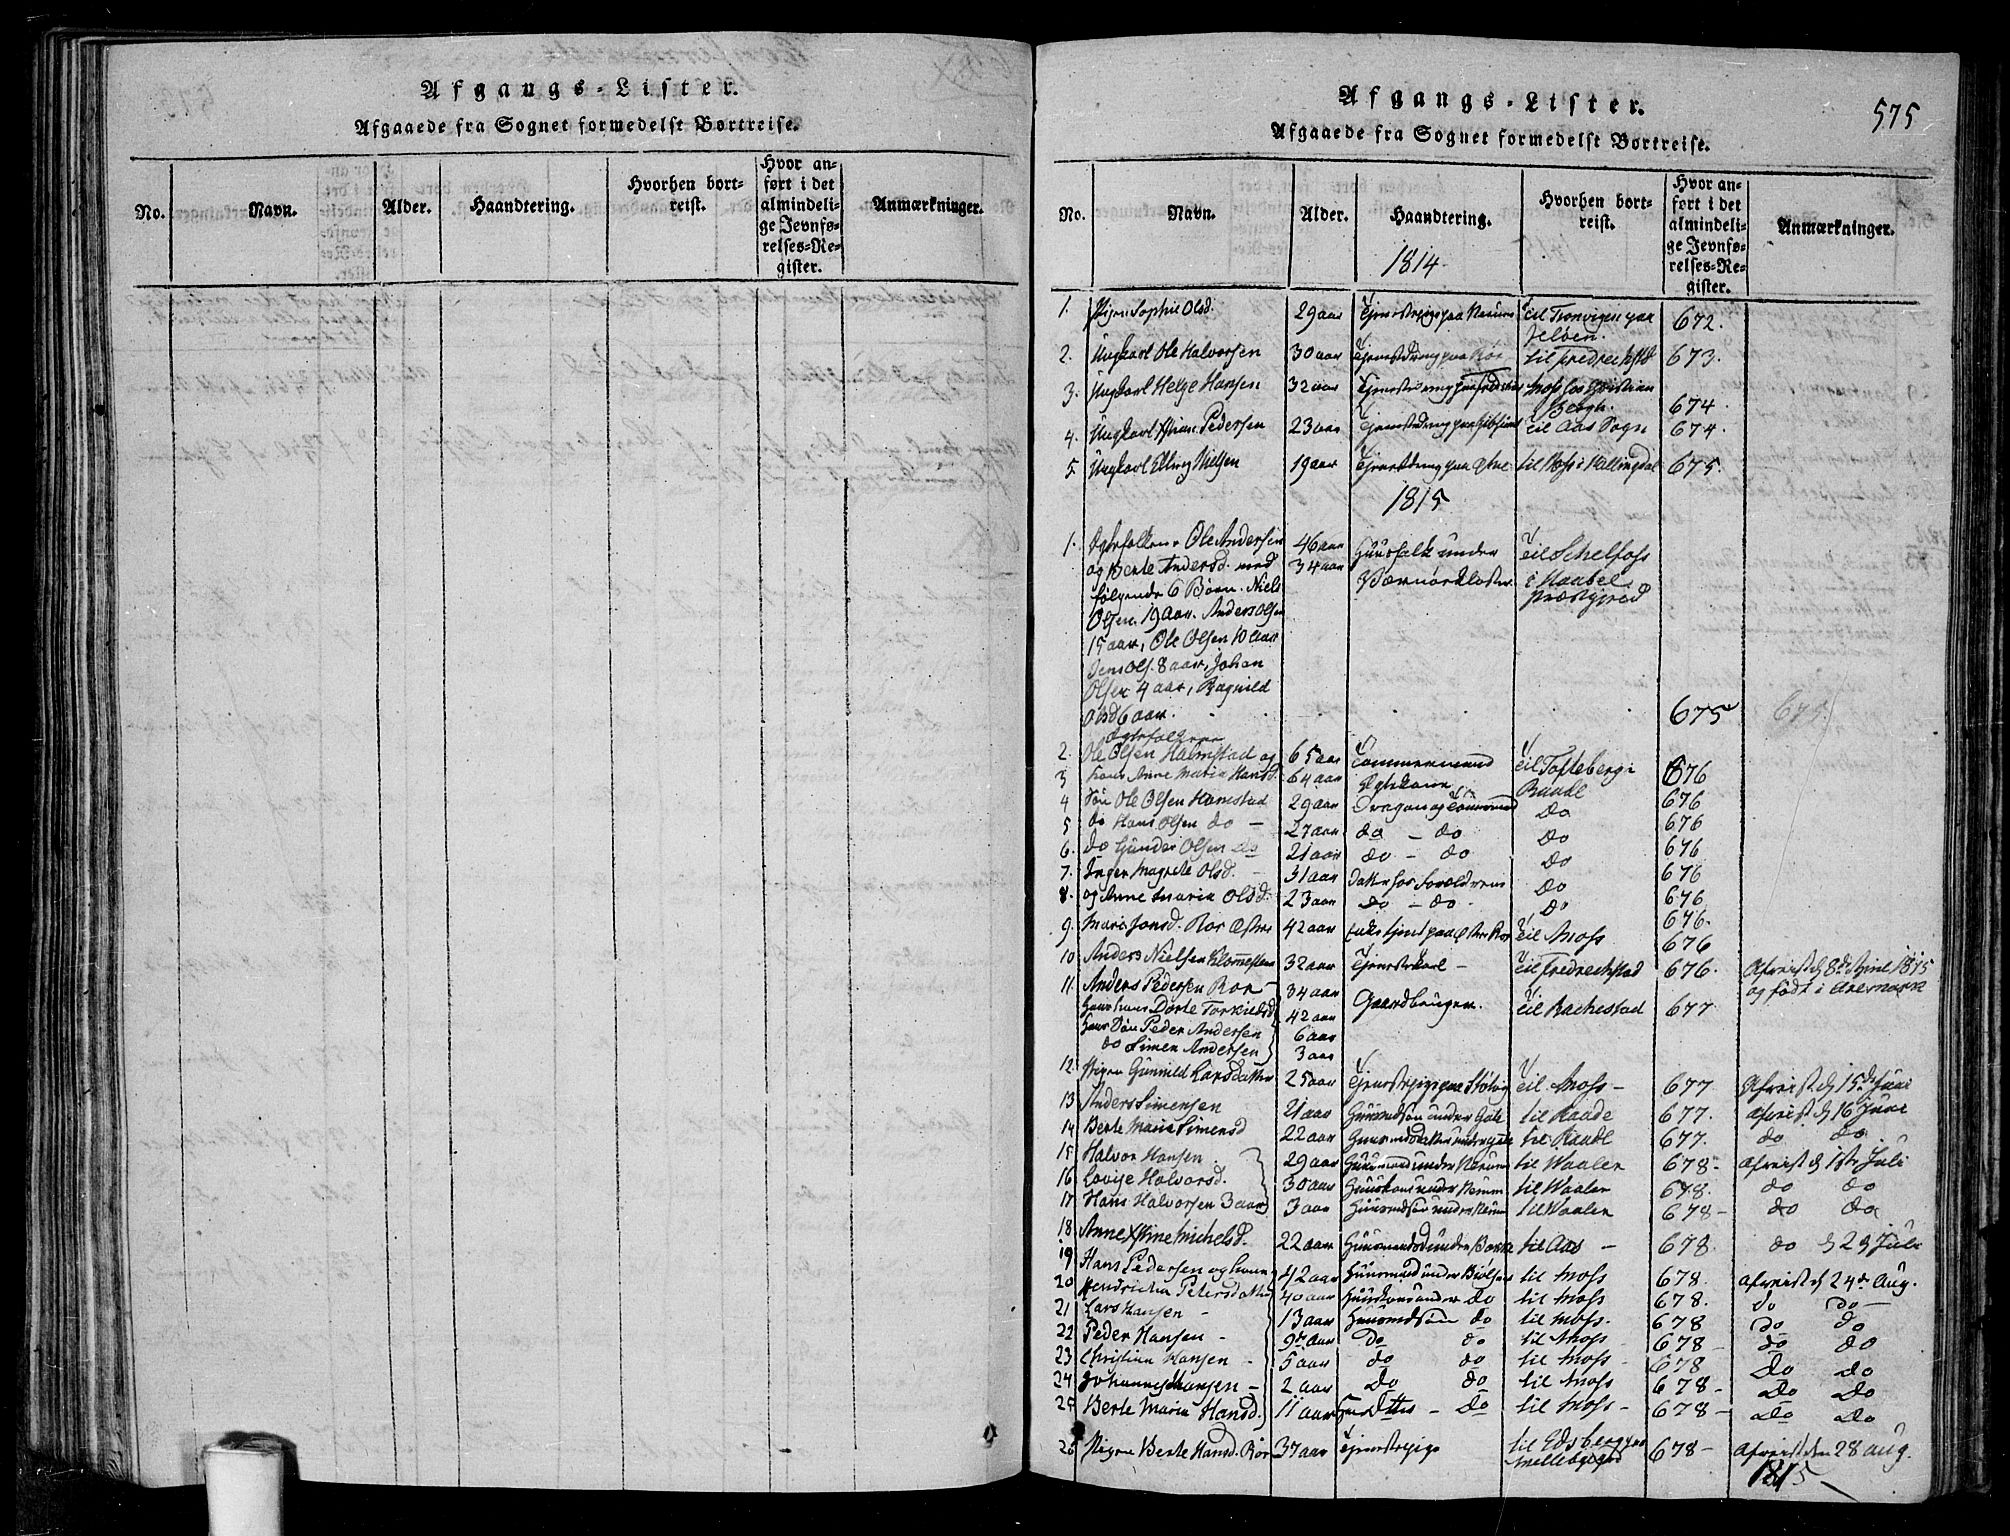 Afgangs-Lister.
Afgaaede fra Sognet formedelst Bortreise.
No. Navn. Alder. Haandtering. Hvorhen bortreist. Hvor anført i det almindelige Jevnførelses-Register. Anmærkninger.
Afgangs-Lister. 575
Afgaaede fra Sognet formedelst Bortreise.
No. Navn. Alder. Haandtering. Hvorhen bortreist. Hvor anført i det almindelige Jevnførelses-Register. Anmærkninger.
1814.
1. Pigen Sophie Olsd. 29 aar Tjenestepige paa til Tronvigen paa Jelöen. 672.
2. Ungkarl Ole Halvorsen 30 aar Tjenestdreng paa Rör til Fredrechst 673.
3. Ungkarl Helge Hansen 32 aar Tjenestdreng paa Moss hos Christian 674.
4. Ungkarl Pedersen 23 aar Tjenestdreng paa til Aas Sogn 674.
5. Ungkarl Elling Nielsen 19 aar Tjenestdreng paa til i Hallingdal 675.
1815
1. Ægtefolkene Ole Andersen 46 aar Huusfolk under til Schelfoss
og Berte Andersd. med 34 aar Værnöekloster i Haabel
følgende 6 Børn. Niels Præstegield
Olsen 19 aar. Anders Olsen
15 aar, Ole Olsen 10 aar
Jens Ols. 8 aar, Johan
Olsen 4 aar, Ragnild
Olsd 6 aar. 675 675
Ægtefolkene
2. Ole Olsen Halmstad og 65 aar Tømmermand til Tofteberg i 676
3 Anne Maria Hansd. 64 aar Ægtekone Raade 676
4 Søn Ole Olsen Hamestad 29 aar Dragon og Do 676
5 do Hans Olsen do - 27 aar do - do Do 676
6. do Gunder Olsen do 21 aar do - do Do 676
7. Inger Magrete Olsd. - 31 aar hos Foreldrene Do 676
8. og Anne Maria Olsd. 23 aar do - do Do 676.
9. Maria Jonsd. Ror Østre 42 aar til Moss 676
10 Anders Nielsen 32 aar Tjenestekarl - til Fredrechstad 676. Afreist d 8de April 1815
11. Anders Pedersen Ror - 34 aar Gaardbruger. til Rachestad 677. og født i Aremark
hans Kone Dorte Torkieldsd 42 aar
hans Søn Peder Andersen 6 aar
do Simen Andersen 3 aar
12. Pigen Gunnild Larsdatter 25 aar Tjenestepige paa til Moss - 677 Afreist d 15de Juni
13 Anders Simensen 21 aar Huusmandsøn under til Raade 677. afreist d 16 Juni
14 Berte Maria Simensd 22 aar til Raade 677. do do
15 Halvor Hansen 29 aar Huusmand under til Waaler 678- Afreist d 1ste Juli
16 Lovise Halvorsd. 30 aar Huuskone under til Waaler 678. do do
17 Hans Halvorsen 3 aar 3 aar Huusmandsøn under til Waaler 678- do do
18 Anne Xstine Michelsd. 22 aar under til Aas - 678. do d 29 Juli
19 Hans Pedersen og Kone 42 aar Huusmand under til Moss 678. afreist d 24de Aug.
20 Hendricha Petersdatter 40 aar Huuskone under do til Moss 678. do do -
21 Lars Hansen - 13 aar Huusmandsøn do til Moss. 678 do do
22 Peder Hansen - 9de aar Do do til Moss 678- do do
23 Christian Hansen - 5 aar do do til Moss - 678 Do do
24 Johannes Hansen - 2 aar Do do til Moss 678- Do Do
25 Berte Maria Hansd. 11 aar - do til Moss - 678- Do Do
26 Pigen Berte Hansd. Rör 37 aar Tjenestepige til Edsberg 678- Afreist den 28 aug.
1815